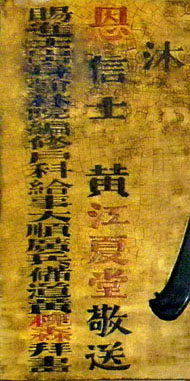 沐
恩信士 黃江夏堂敬送
賜進士出身翰林院編修戶科給事大順廣兵備道黃槐森拜書